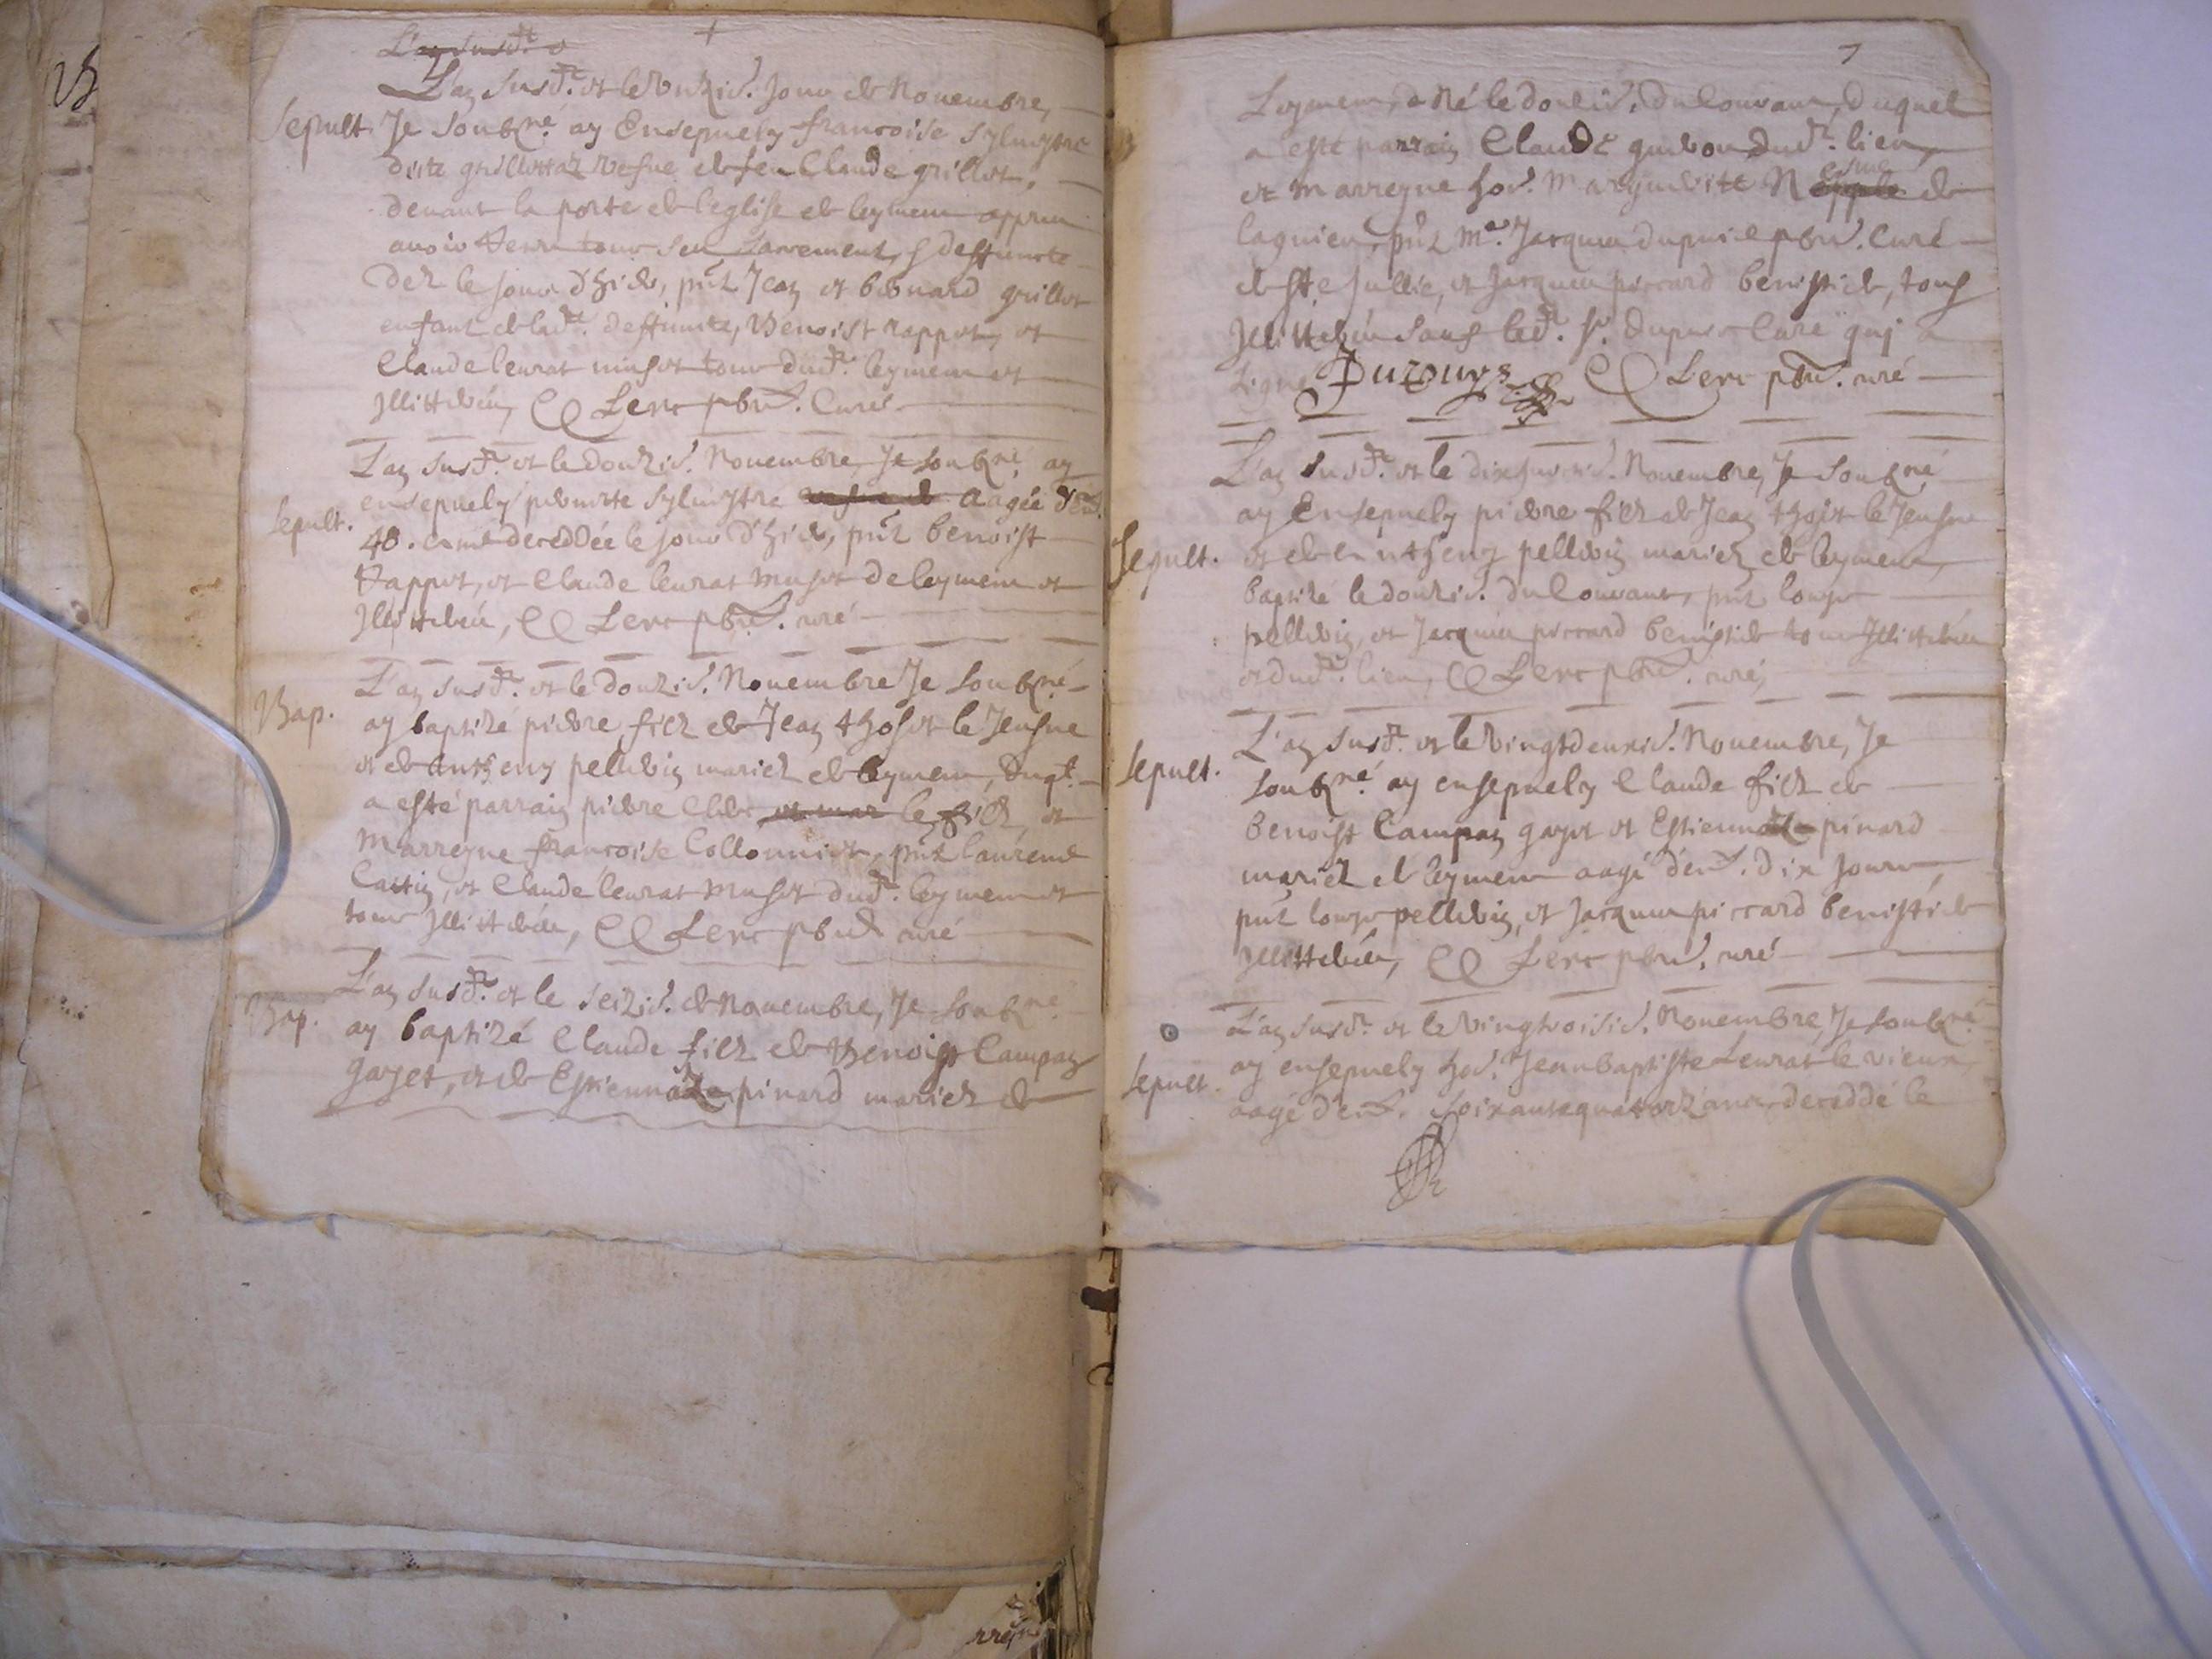 L'an susd.t
L'an susd.t et le unzie. jour de Novembre,
Sepult. Je soubs.né ay Ensepuely francoise Sylvestre
dite grillottaz vesve de feu Claude grillot,
devant la porte de l'eglise de leymen appres
avoir sacrement, deffuncte
dez le jour d'hier, pnt Jean et bernard grillot
enfant de lad.te deffuncte, Benoist rappot, et
Claude leurat musot tous dud.t leymen et
Illitterés, Lerc pbre. Curé
L'an susd.t et le douzie. Novembre, Je soubs.né ay
Sepult. ensepuely pernette Sylvestre aagée d'env.
40. deceddée le jour d'hier, pnt benoist
Rappot, et Claude leurat musot de leymen et
Illitterés, Lerc pbre. curé
L'an susd.t et le douzie. Novembre Je soubs.né
Bap. ay baptizé pierre, filz de Jean thosot le Jeusne
et de Antheny pellerin mariez de leymen, duq.t
a esté parrain pierre Clerc et mar le filz, et
Marreyne francoise Collonnier, pnt laurend
Cattin, et Claude leurat musot dud.t leymen et
tous Illitterés, Lerc pbre curé
L'an susd.t et le seizie. de Novembre, Je soubs.né
Bap. ay baptizé Claude filz de Benoist Campan
gayet, et de Estienna pinard mariez de
7
Leymen, né le douzie. du Courant, duquel
a esté parrain Claude dud.t lieu,
et marreyne hon. Marguerite de
lagnieu, pnt M.re Jacques dupuis pbre. Curé
de ste Jullie, et Jacques piccard benistier, tous
Illitterés sauf led.t s.r dupuis Curé quj a
signé Dupuys Lerc pbre. curé
L'an susd.t et le dixhuictie. Novembre, Je soubs.né
ay Ensepuely pierre filz de Jean thosot le Jeusne
Sepult. et de Antheny pellerin mariez de leymen,
baptizé le douzie. du Courant, pnt louys
pellerin, et Jacques piccard benistier tous Illitterés
et dud.t lieu, Lerc pbre. curé,
L'an susd.t et le vingtdeuxie. Novembre, Je
Sepult. soubs.né ay ensepuely Claude filz de
Benoist Campan gayet et Estienna pinard
mariez de leymen aagé d'env. dix jours,
pnt louys pellerin, et Jacques piccard benistier
Illitterés, Lerc pbre. curé
L'an susd.t et le vingtroisie. Novembre, Je soubs.né
Sepult. ay ensepuely hon. Jean baptiste Leurat le vieux,
aagé d'env. soixantequatorz' ans, decedde le